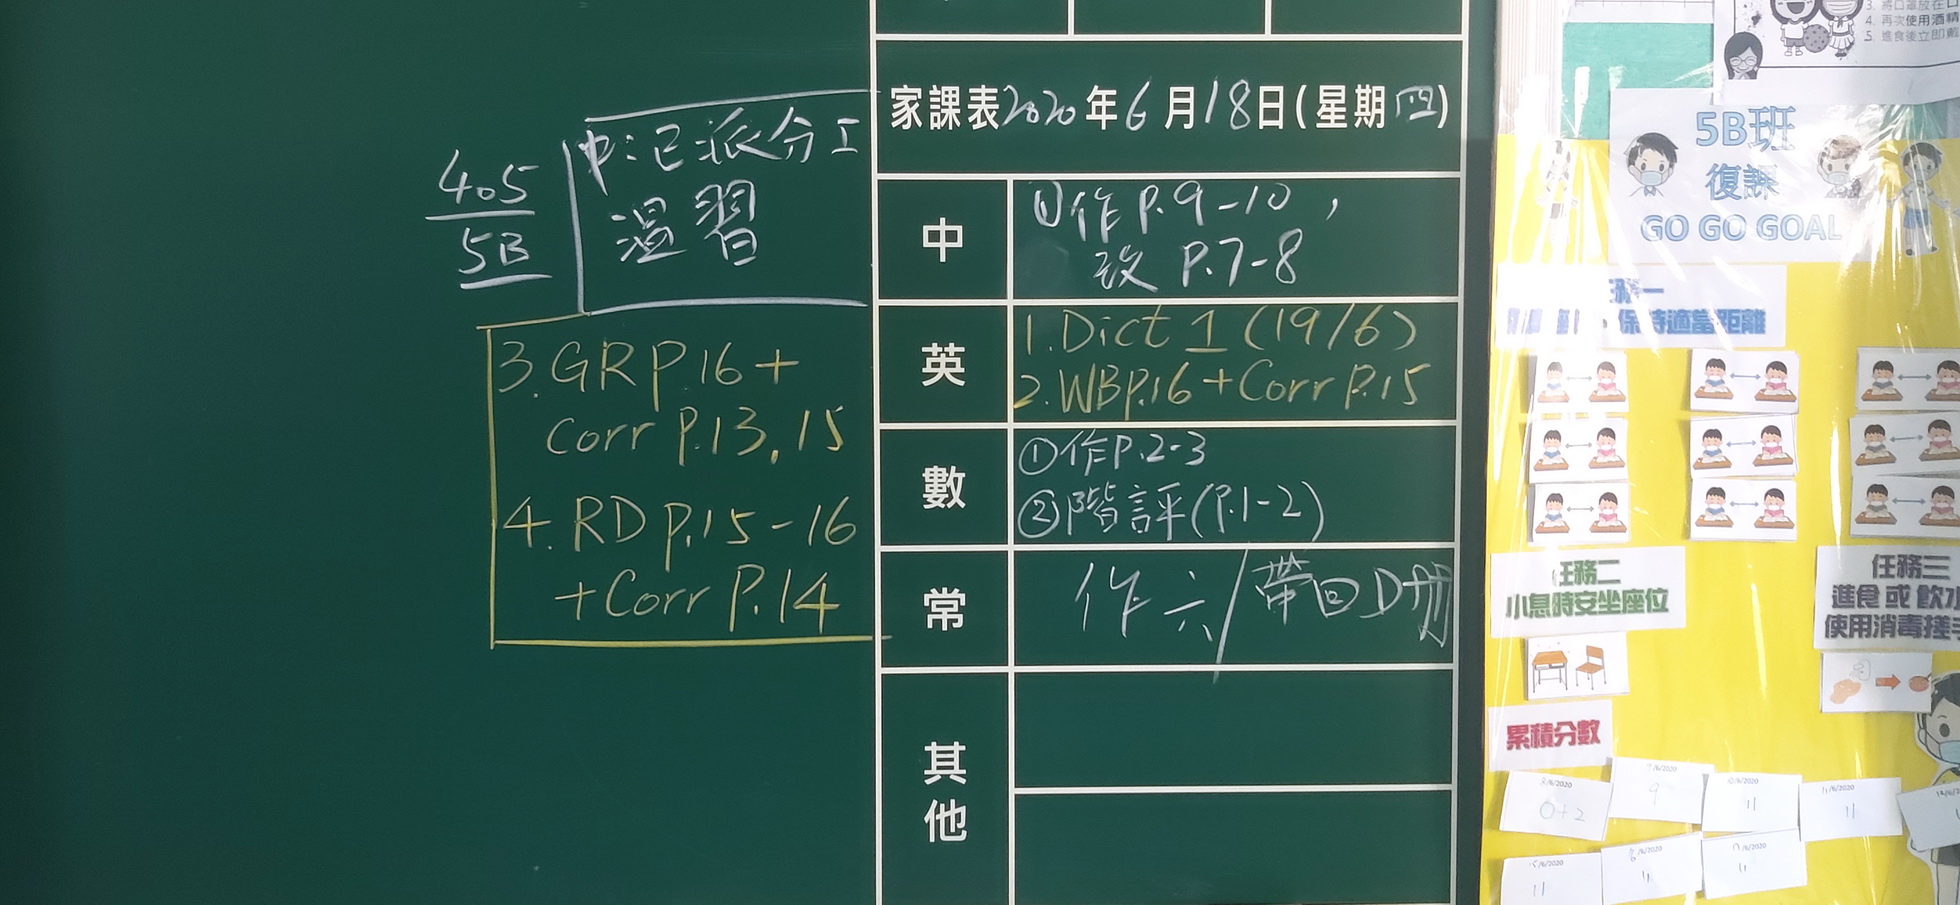 家課表2020年6月18日(星期四)
405
5B
中:已派分工
溫習
中
①作P.9-10,
改P.7-8
英
1.Dict 1 (19/6)
2.WBP.16+Corr P.15
3.GR P.16+
Corr P.13,15
4.RD P.15-16
+Corr P.14
數
①作P.2-3
②階評(P.1-2)
常
作六/帶回D冊
其他
3. 將口罩放在口
4. 再次使用酒精
5. 進食後立即戴
5B班
復課
GO GO GOAL
任務一
保持適當距離
任務二
小息時安坐座位
任務三
進食或飲水
使用消毒搓手
累積分數
8/6/2020
0+2
9/6/2020
9
10/6/2020
11
11/6/2020
11
15/6/2020
11
16/6/2020
11
17/6/2020
11